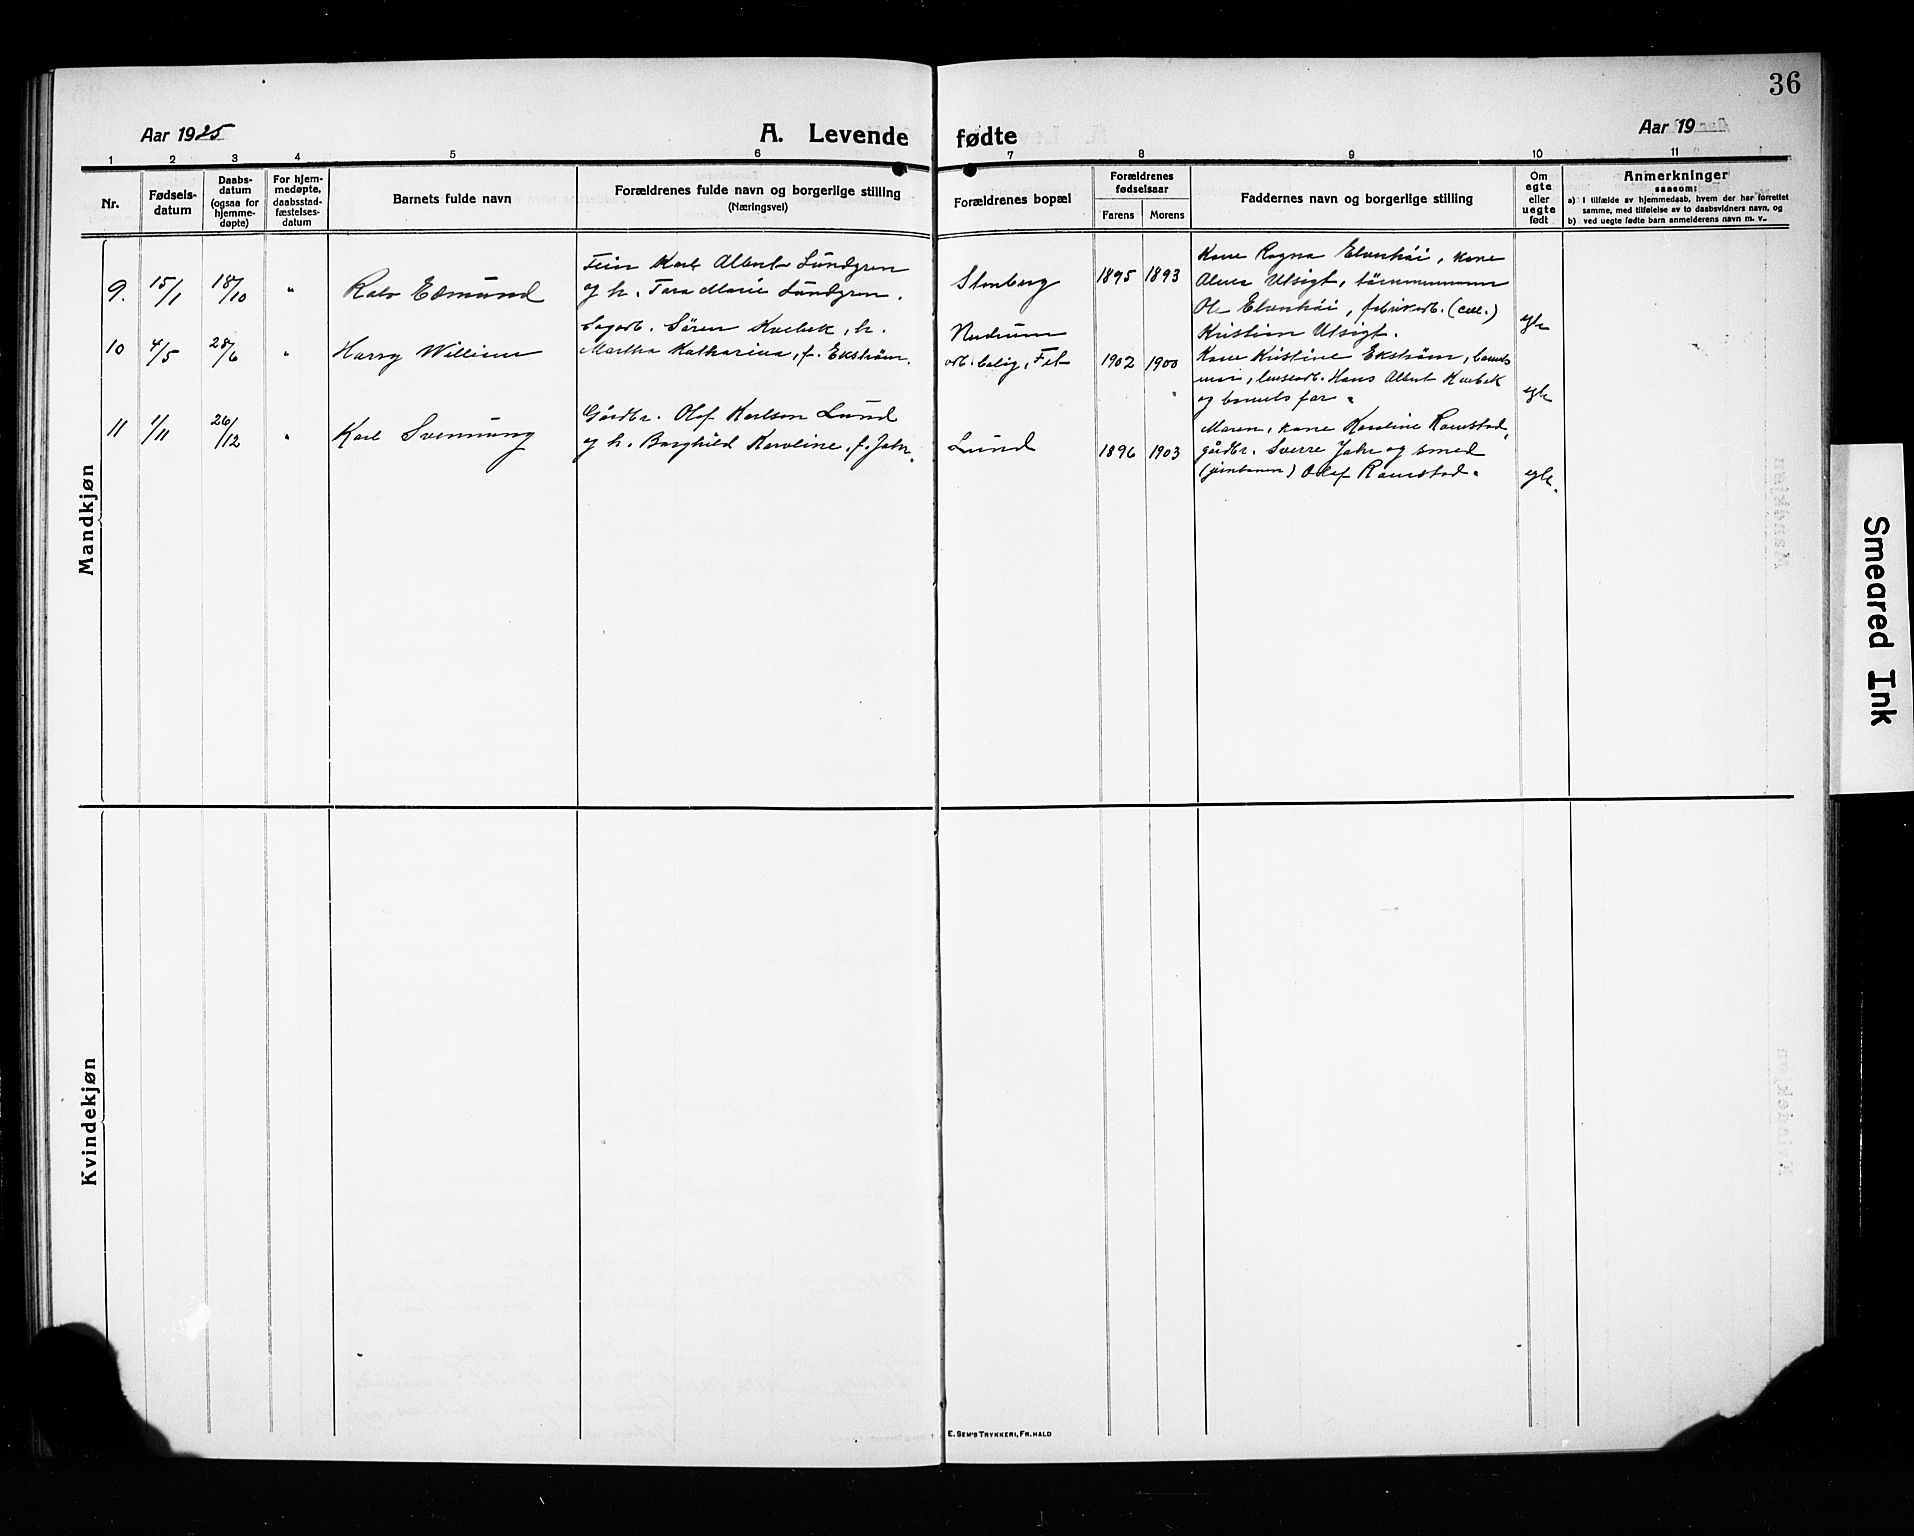 36
Aar 1925
A. Levende fødte
Aar 19
1 2 3 4 5 6 7 8 9 10 11
Nr.
Fødsels-
datum
Daabs-
datum
(ogsaa for
hjemme-
døpte)
For hjem-
medøpte,
daabsstad-
fæstelses-
datum
Barnets fulde navn
Forældrenes fulde navn og borgerlige stilling
(Næringsvei)
Forældrenes bopæl
Forældrenes
fødselsaar
Farens Morens
Faddernes navn og borgerlige stilling
Om
egte
eller
uegte
født
Anmerkninger
saasom:
a) I tilfælde av hjemmedaab, hvem der har forrettet
samme, med tilføielse av to daabsvidners navn, og
b) ved uegte fødte barn anmelderens navn m. v.
Mandkjøn
9. 15/1 18/10 " Rolv Edmund
Feier Karl Albert Lundgren
og h. Tara Marie Lundgren.
Stenberg
1895 1893
Kone Ragna Elvenhøi, kone
Utsigt, tømmermann
Ole Elvenhøi, fabrikarb.
Kristian Utsigt.
egte
10 4/5 28/6 " Harry William
Sagarb. Søren Kvebek, h.
Martha Katharina, f. Ekstrøm.
arb.bolig, Fet
1902 1900
Kone Kristine Ekstrøm, barnets
mor, Hans Albert Kvebek
og barnets far "
egte
11 1/11 26/12 " Karl Svennung
Gårdbr. Olaf Karlsen Lund
og h. Borghild Karoline, f. Jahr.
Lund
1896 1903
Moren, kone Karoline Ramstad,
gårdbr. Sverre Jahr og smed
Olaf Ramstad.
egte.
Kvindekjøn
E. SEM'S TRYKKERI, FR.HALD
Smeared Ink